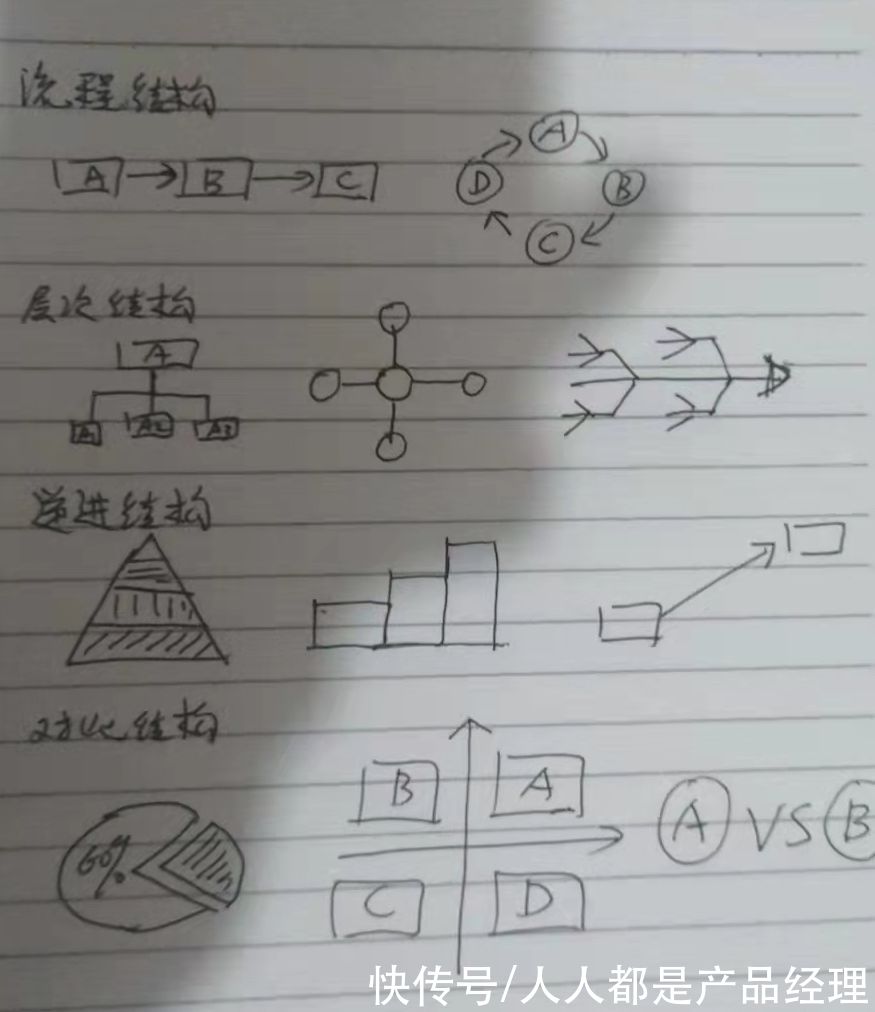 流程结构
A B C
A
D B
C
层次结构
A
A1 A2 A3
递进结构
对比结构
B A
60% A VS B
C D
快传号/人人都是产品经理